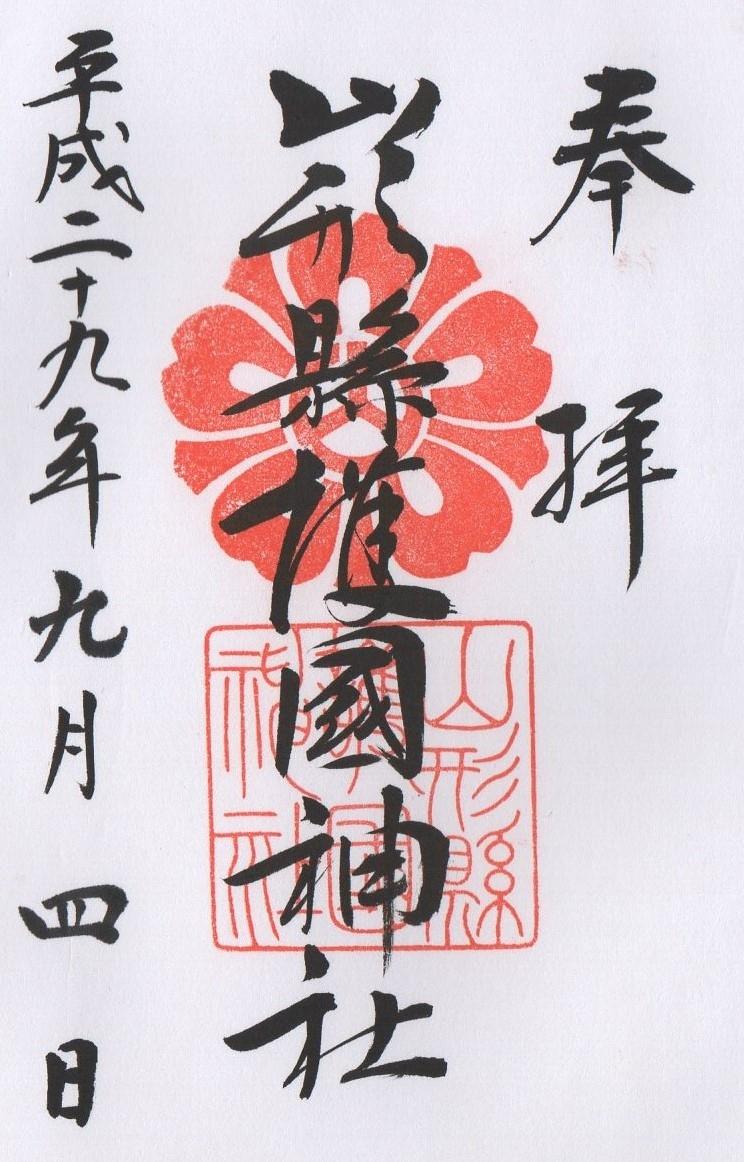 奉拝
山形縣護國神社
山形縣
護國
神社
平成二十九年九月四日